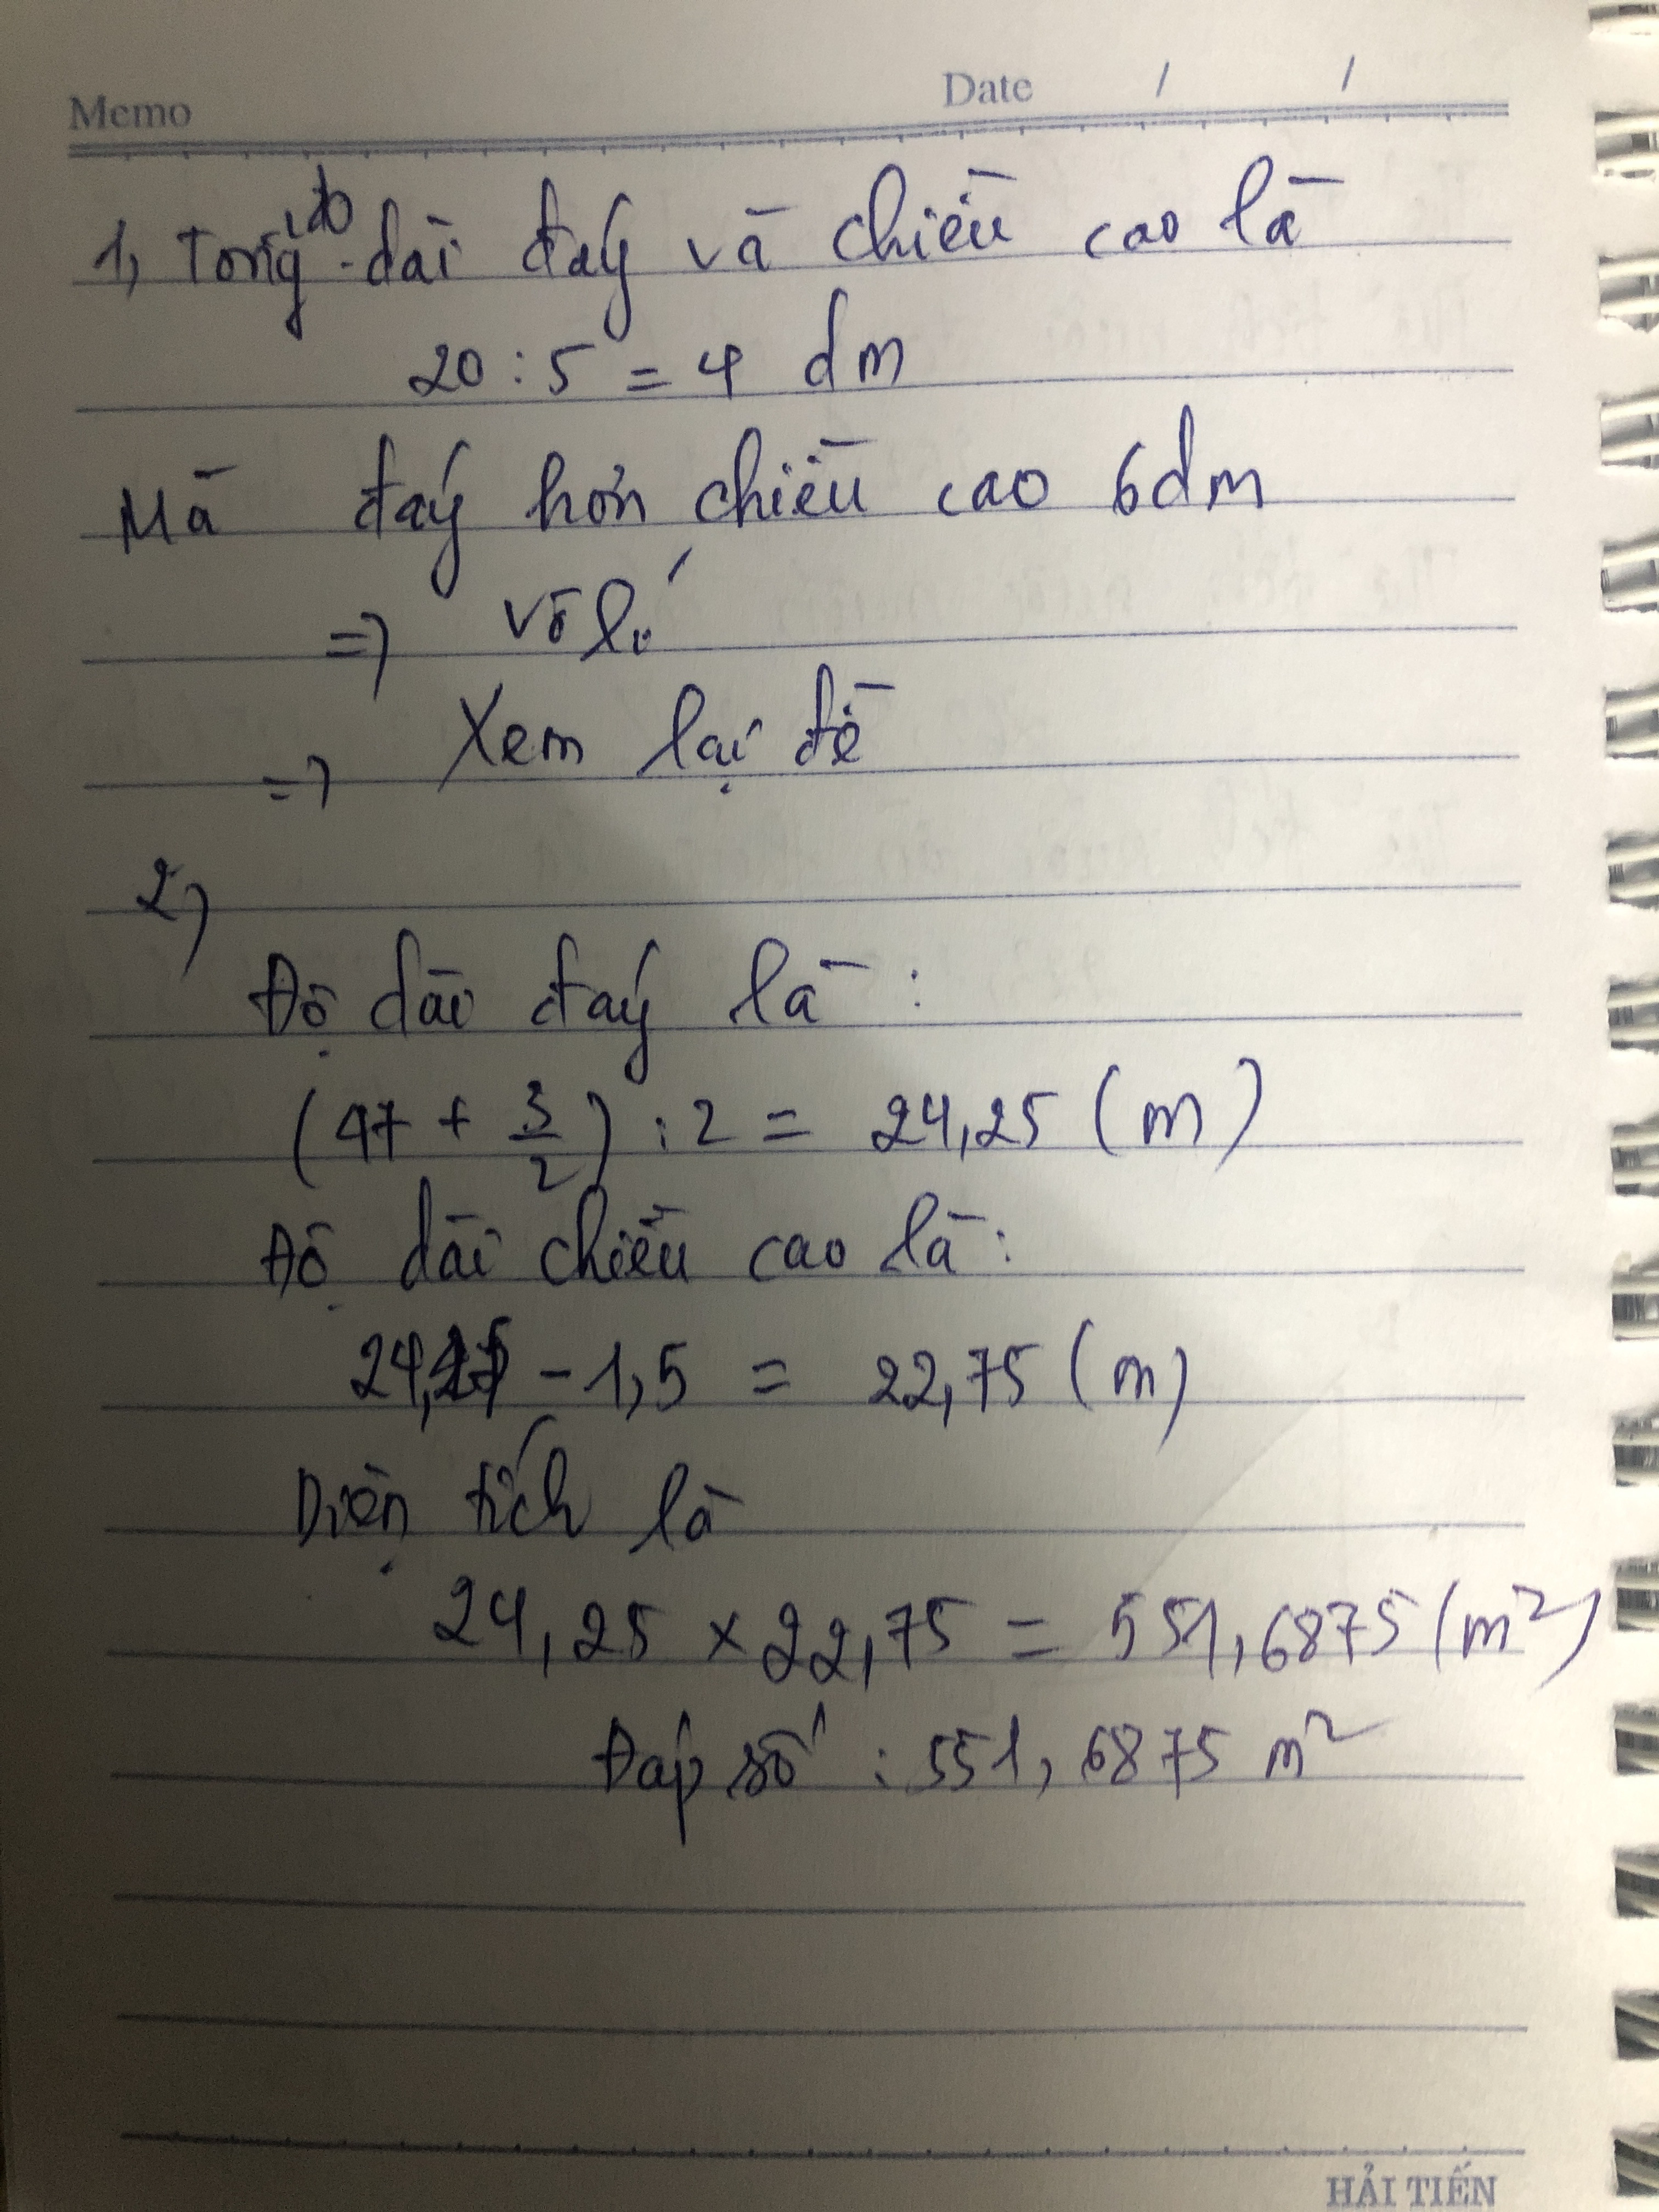 Memo Date / /
1, Tổng độ dài đáy và chiều cao là
20 : 5 = 4 dm
Mà đáy hơn chiều cao 6dm
=> vô lí
=> Xem lại đề
2)
Độ dài đáy là :
(47 + 3/2) : 2 = 24,25 (m)
Độ dài chiều cao là :
24,25 - 1,5 = 22,75 (m)
Diện tích là
24,25 x 22,75 = 551,6875 (m²)
Đáp số : 551,6875 m²
HẢI TIẾN